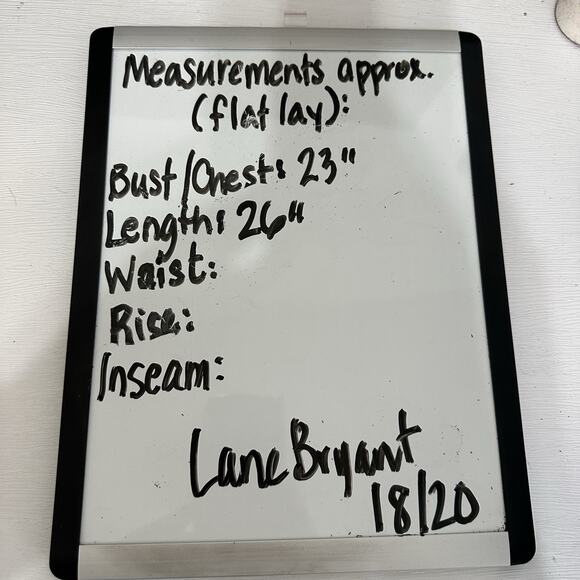 Measurements approx.
(flat lay):
Bust/Chest: 23"
Length: 26"
Waist:
Rise:
Inseam:
Lane Bryant
18/20